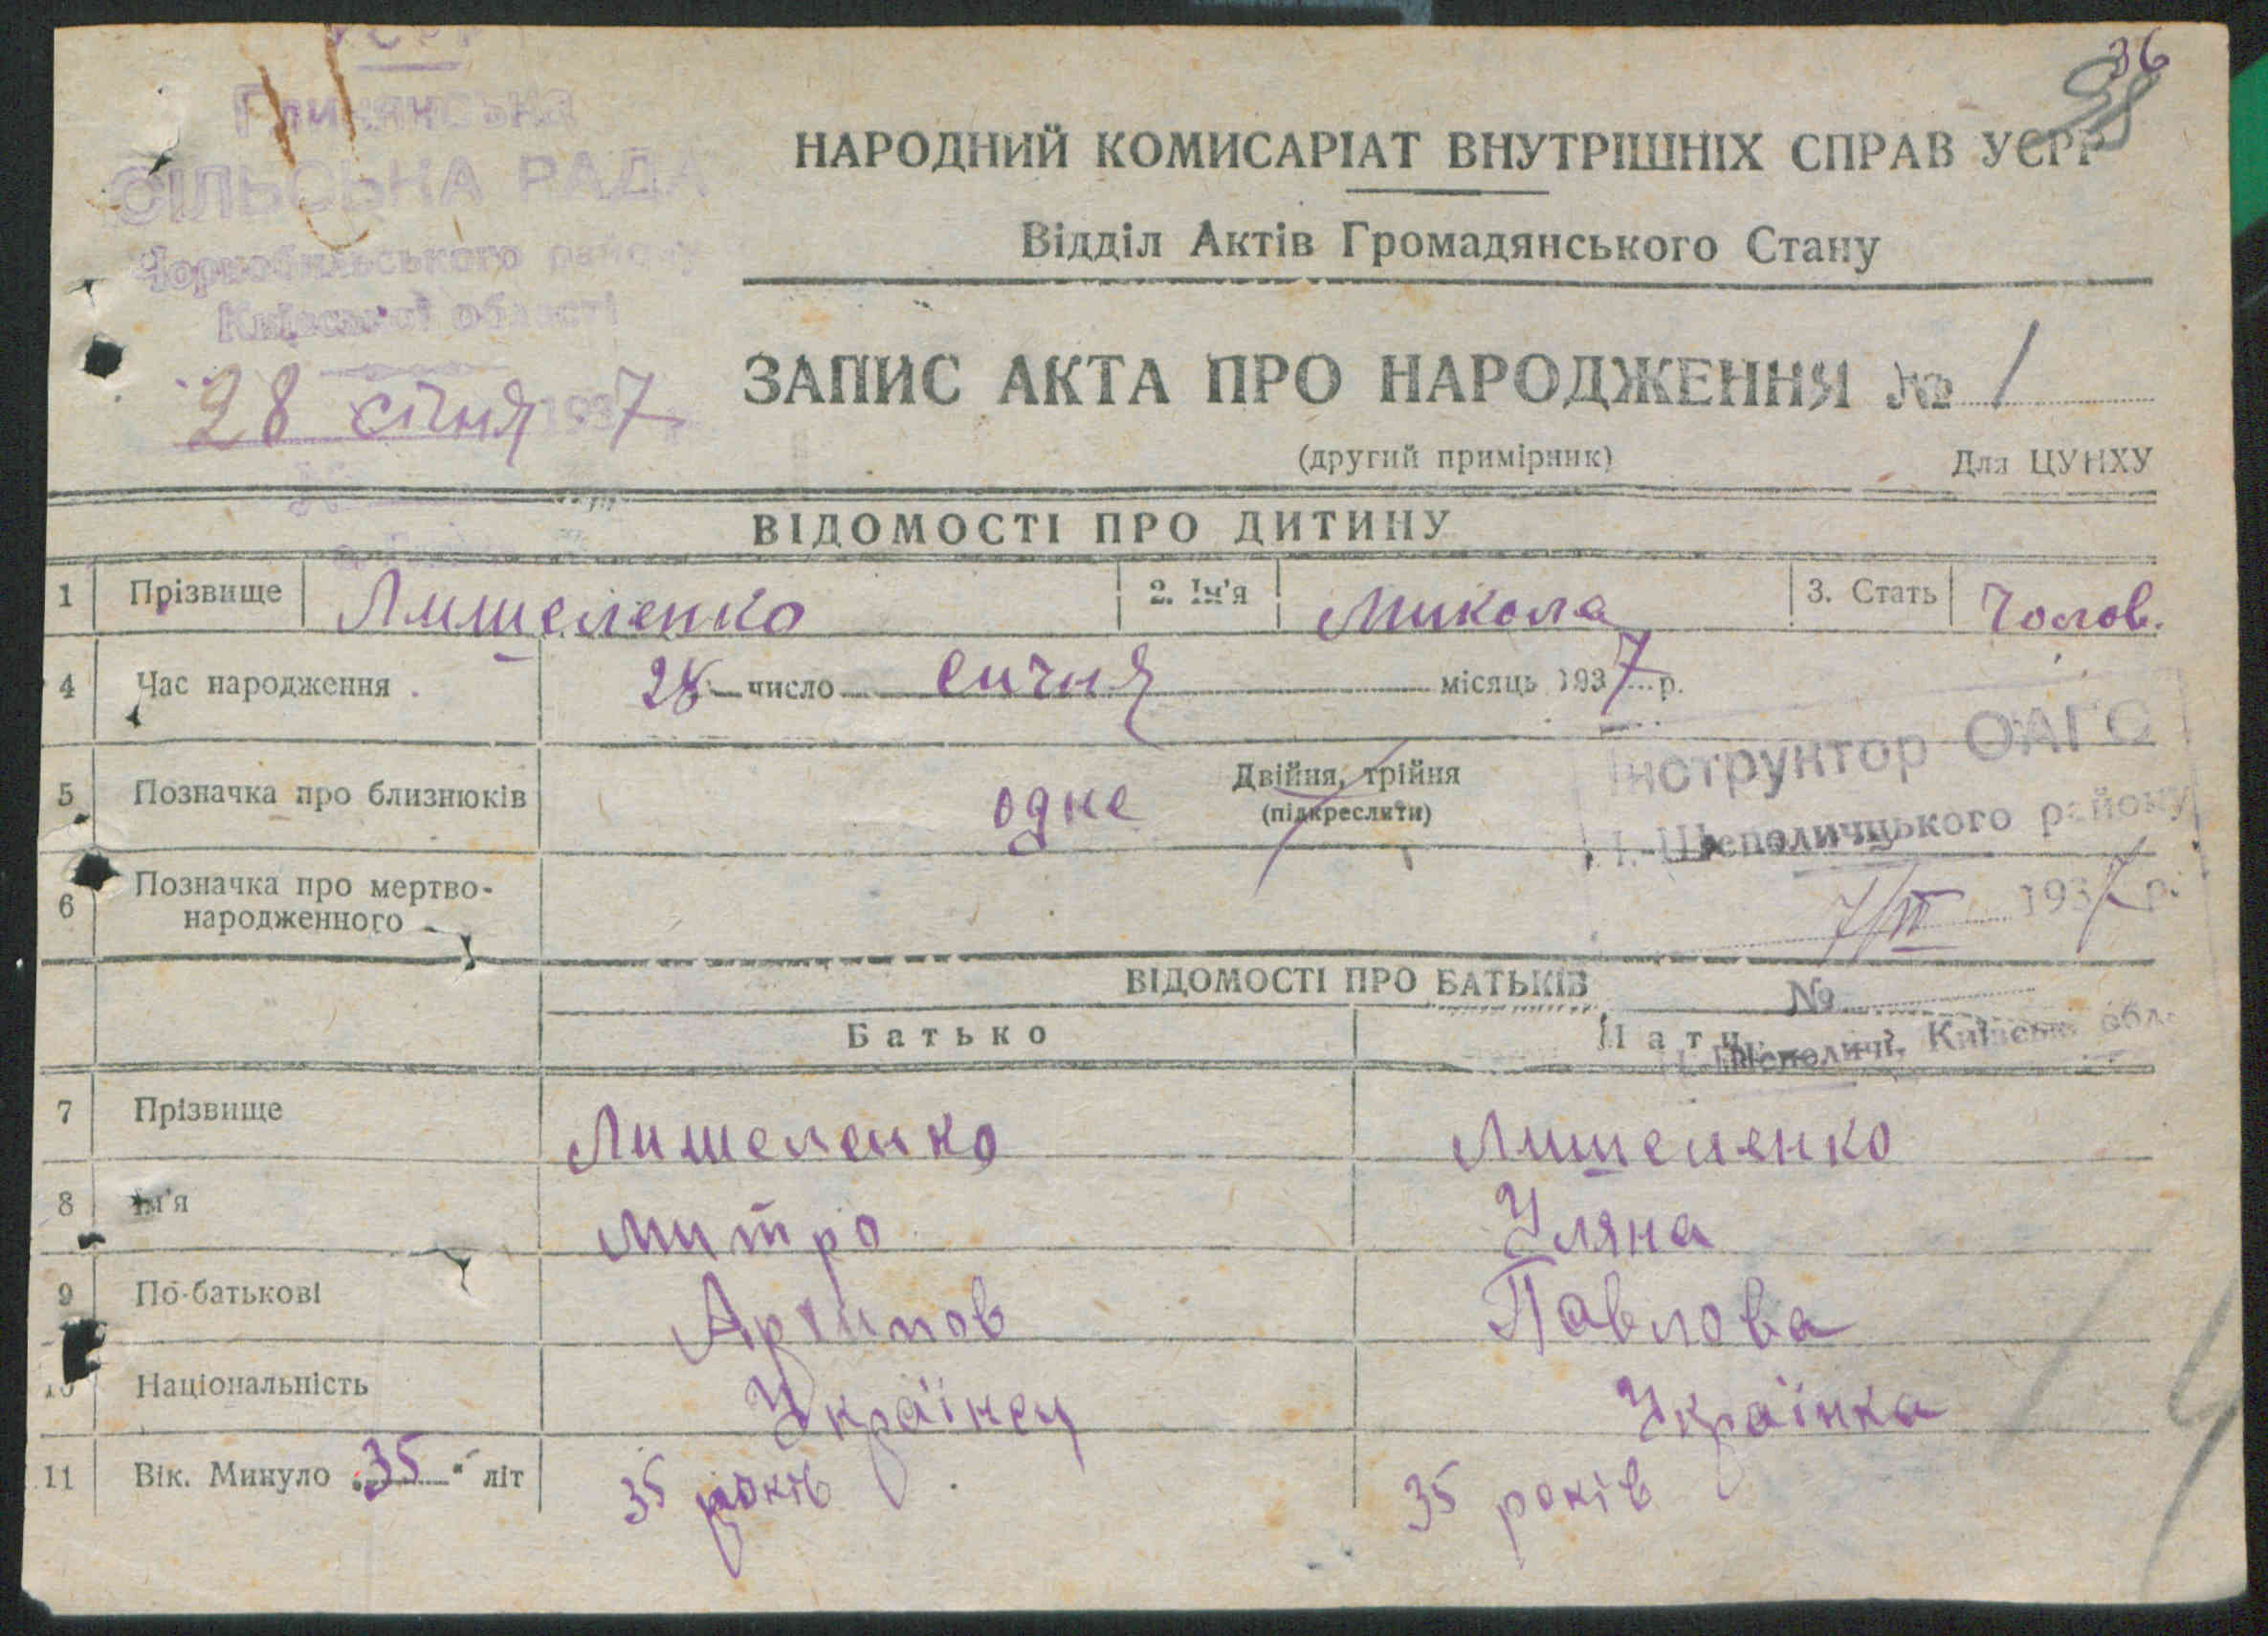 36
Глинянська
СІЛЬСЬКА РАДА
Чорнобильського району
Київської області
28 січня 1937
НАРОДНИЙ КОМИСАРІАТ ВНУТРІШНІХ СПРАВ УСРР
Відділ Актів Громадянського Стану
ЗАПИС АКТА ПРО НАРОДЖЕННЯ № 1
(другий примірник) Для ЦУНХУ
ВІДОМОСТІ ПРО ДИТИНУ
1 Прізвище Лишеленко 2. Ім'я Микола 3. Стать Чолов.
4 Час народження 28 число сичня місяць 1937 р.
5 Позначка про близнюків одне Двійня, трійня
(підкреслити)
6 Позначка про мертво-
народженного
Інструктор ОАГС
Шепеличцького району
7/III 1937 р.
№
Шепеличі, Київськ. обл.
ВІДОМОСТІ ПРО БАТЬКІВ
Батько Мати
7 Прізвище Лишеленко Лишеленко
8 Ім'я Митро Уляна
9 По-батькові Архипов Павлова
10 Національність Українец Українка
11 Вік. Минуло „35“ літ 35 років 35 років